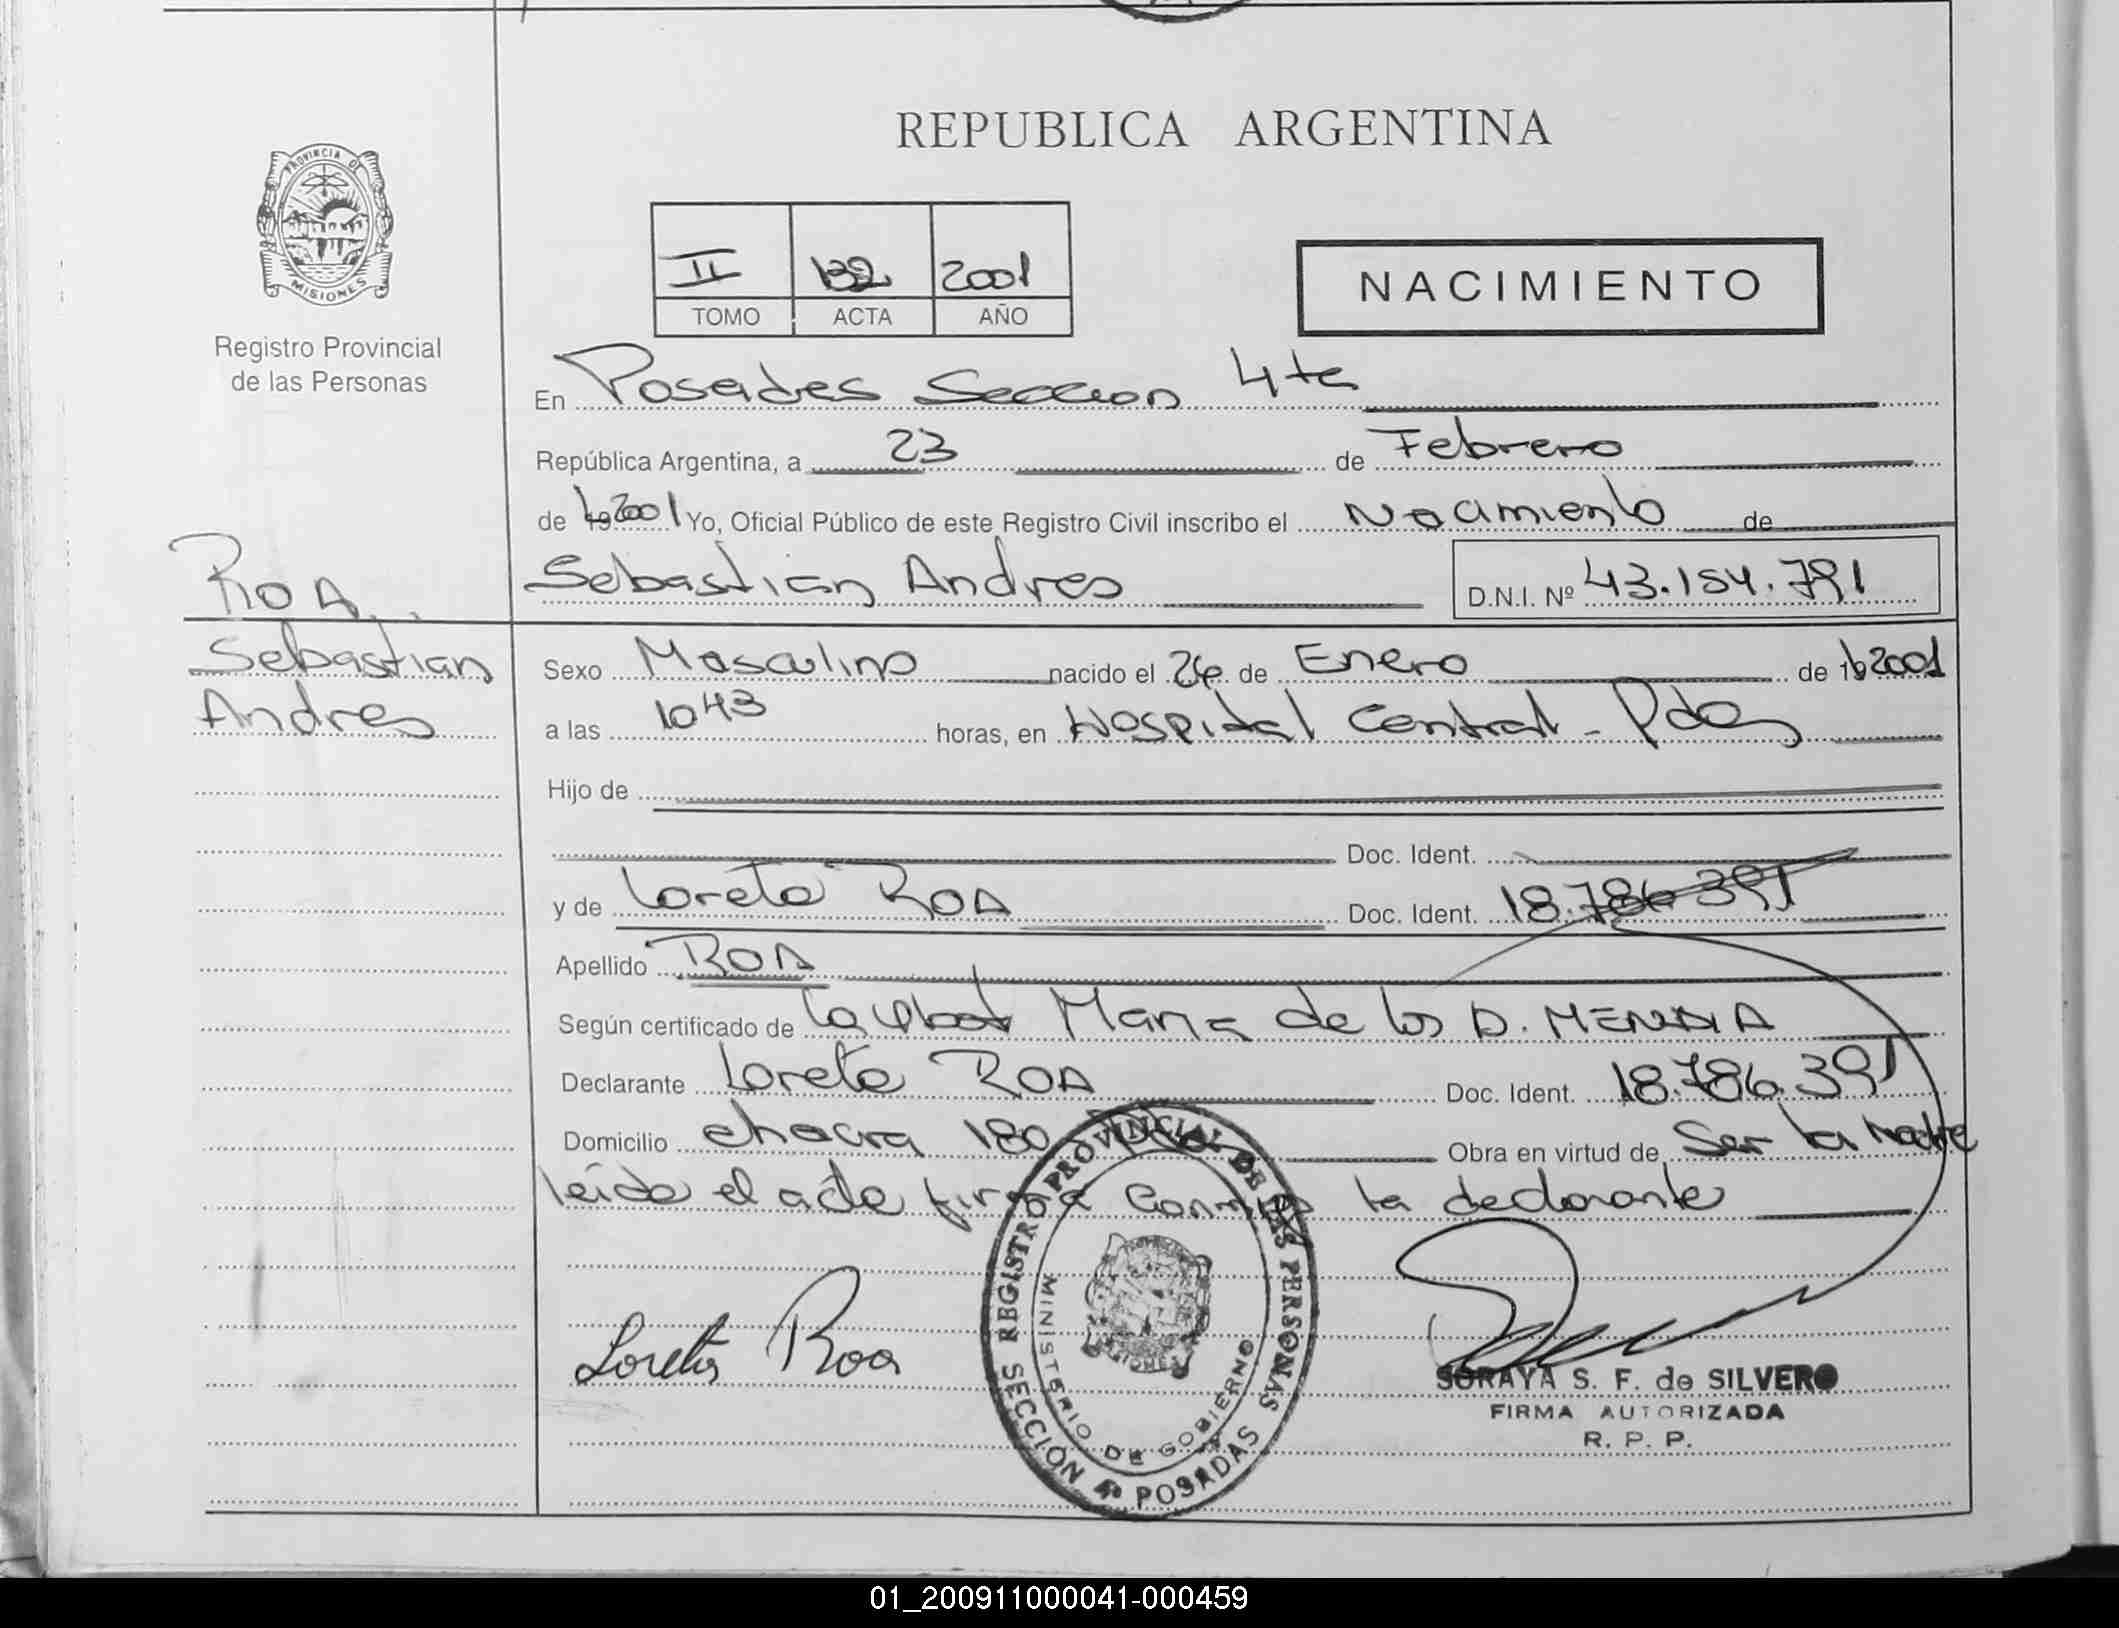 REPUBLICA ARGENTINA
PROVINCIA DE MISIONES
Registro Provincial
de las Personas
II 132 2001
TOMO ACTA AÑO
NACIMIENTO
En Posadas Seccion 4ta
República Argentina, a 23 de Febrero
de 2001 Yo, Oficial Público de este Registro Civil inscribo el Nacimiento de
Sebastian Andres D.N.I. Nº 43.154.791
ROA
Sebastian
Andres
Sexo Masculino nacido el de Enero de 2001
a las 1043 horas, en Hospital Central - Pdas
Hijo de
Doc. Ident.
y de Loreta ROA Doc. Ident. 18.786.391
Apellido ROA
Según certificado de Maria de los D.
Declarante Loreta ROA Doc. Ident. 18.786.391
Domicilio chacra 180 Obra en virtud de Ser la Madre
leida el acta firma conmigo la declarante
Loreta Roa
REGISTRO PROVINCIAL DE LAS PERSONAS
MINISTERIO DE GOBIERNO
SECCION 4a POSADAS
SORAYA S. F. de SILVERO
FIRMA AUTORIZADA
R. P. P.
01_200911000041-000459